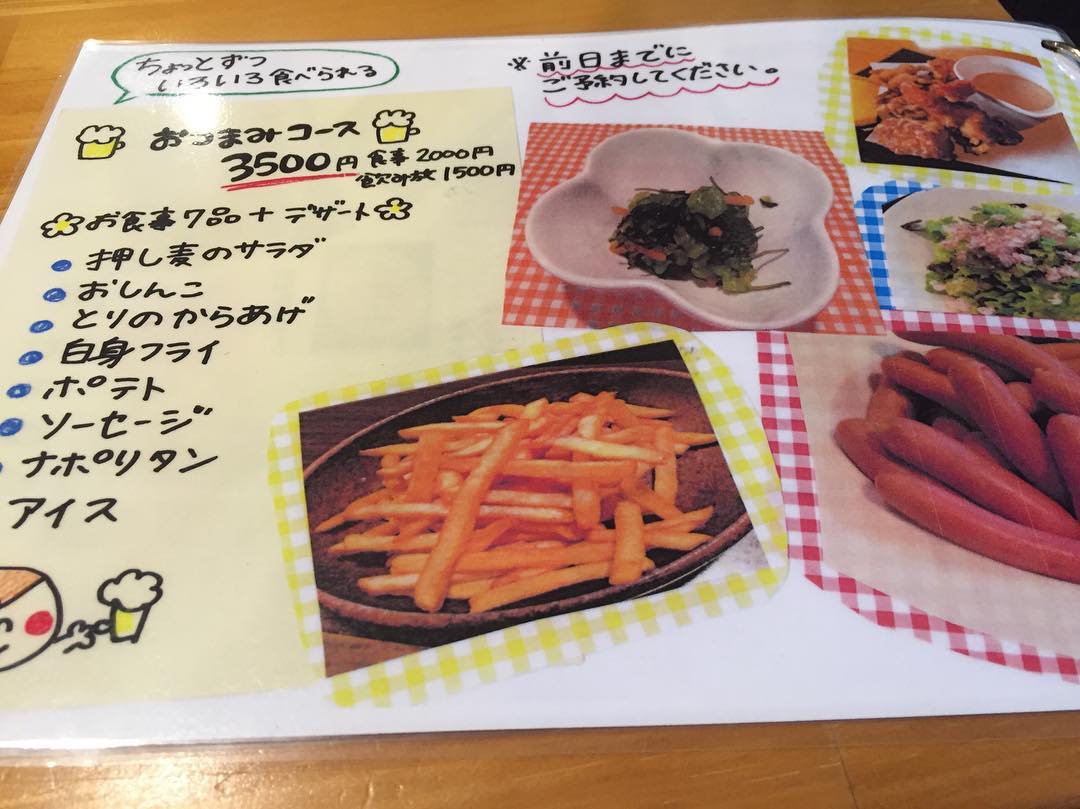 ちょっとずつ
いろいろ食べられる
※前日までに
ご予約してください。
おつまみコース
3500円 食事 2000円
飲み放 1500円
お食事7品+デザート
押し麦のサラダ
おしんこ
とりのからあげ
白身フライ
ポテト
ソーセージ
ナポリタン
アイス